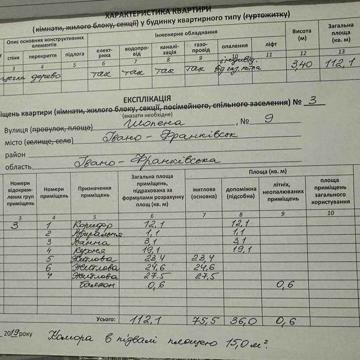 ХАРАКТЕРИСТИКА КВАРТИРИ
(кімнати, жилого блоку, секції) у будинку квартирного типу (гуртожитку)
Опис основних конструктивних елементів Інженерне обладнання Висота (м) Загальна площа (кв. м)
стіни перекриття підлога елект- водопро- від каналі- зація газо- провід опалення ліфт
7 8 9 10 11 12 13
дерево так так так так 3,40 112,1
ЕКСПЛІКАЦІЯ
приміщень квартири (кімнати, жилого блоку, секції, посімейного, спільного заселення) № 3
(вказати необхідне)
Вулиця (провулок, площа) Шопена, № 9
місто (селище, село) Івано-Франківськ
район
область Івано-Франківська
Номери приміщень Призначення приміщень Загальна площа приміщень, підрахована за формулами розрахунку площ (кв. м) Площа (кв. м) площа приміщень загального користування
житлова (основна) допоміжна (підсобна) літніх, неопалюваних приміщень
3 4 5 6 7 8 9 10
3 1 Коридор 12,1 12,1
2 1,1 1,1
3 Ванна 3,1 3,1
4 Кухня 19,1 19,1
5 Житлова 23,4 23,4
6 Житлова 24,6 24,6
7 Житлова 27,5 27,5
Балкон 0,6 0,6
Усього: 112,1 75,5 36,0 0,6 0,6
2019 року Комора в підвалі площею 15,0 м²